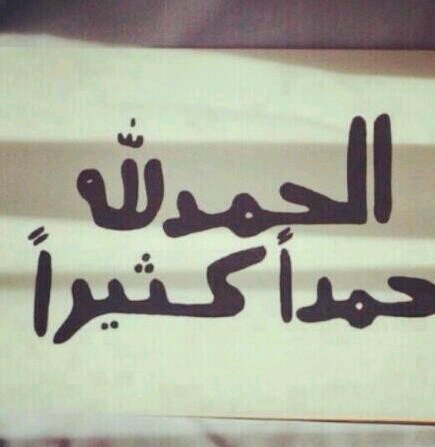 الحمد لله
حمداً كثيراً